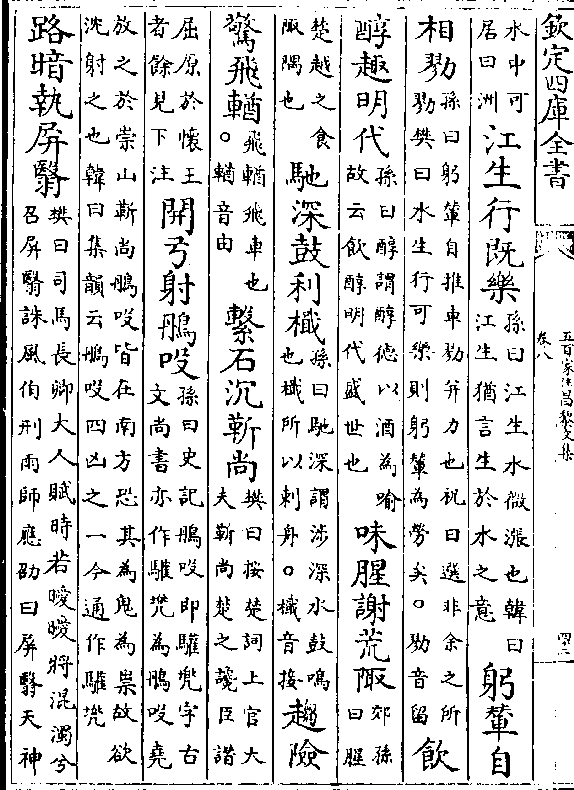 欽定四庫全書
五百家注昌黎文集
卷八
水中可居曰洲江生行既樂孫曰江生水微漲也韓曰江生猶言生於水之意躬輦自
相勠孫曰躬輦自推車勠并力也祝曰選非余之所勠樊曰水生行可樂則躬輦為勞矣。勠音留飲
醇趣明代孫曰醇謂醇德以酒為喻故云飲醇明代盛世也味腥謝荒陬郊孫曰腥
楚越之食陬隅也馳深鼓利檝孫曰馳深謂涉深水鼓鳴也檝所以刺舟。檝音接趨險
驚飛輶。飛輶飛車也輶音由繫石沉靳尚樊曰按楚詞上官大夫靳尚楚之讒臣譖
屈原於懷王者餘見下注開弓射鴅吺孫曰史記鴅吺即驩兜字古文尚書亦作驩兜為鴅吺堯
放之於崇山靳尚鴅吺皆在南方恐其為鬼為祟故欲沈射之也韓曰集韻云鴅吺四凶之一今通作驩兜
路暗執屏翳樊曰司馬長卿大人賦時若曖曖將混濁兮召屏翳誅風伯刑雨師應劭曰屏翳天神